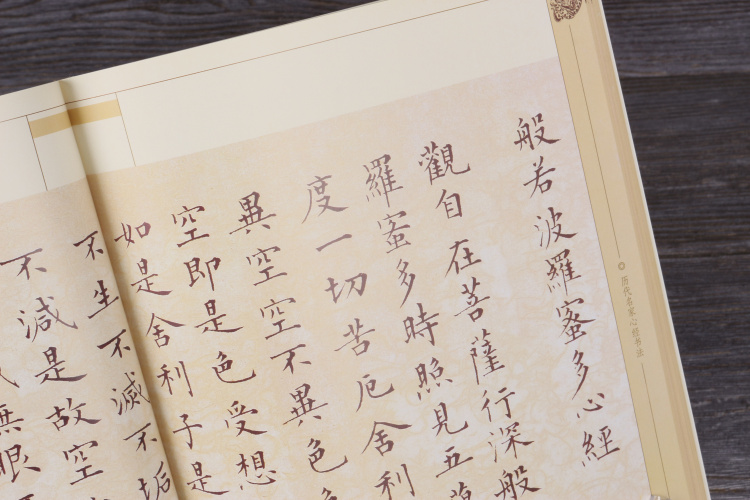 历代名家心经书法
般若波羅蜜多心經
觀自在菩薩行深般
羅蜜多時照見五
度一切苦厄舍利
異空空不異色
空即是色受想
如是舍利子是
不生不滅不垢
不減是故空
無眼